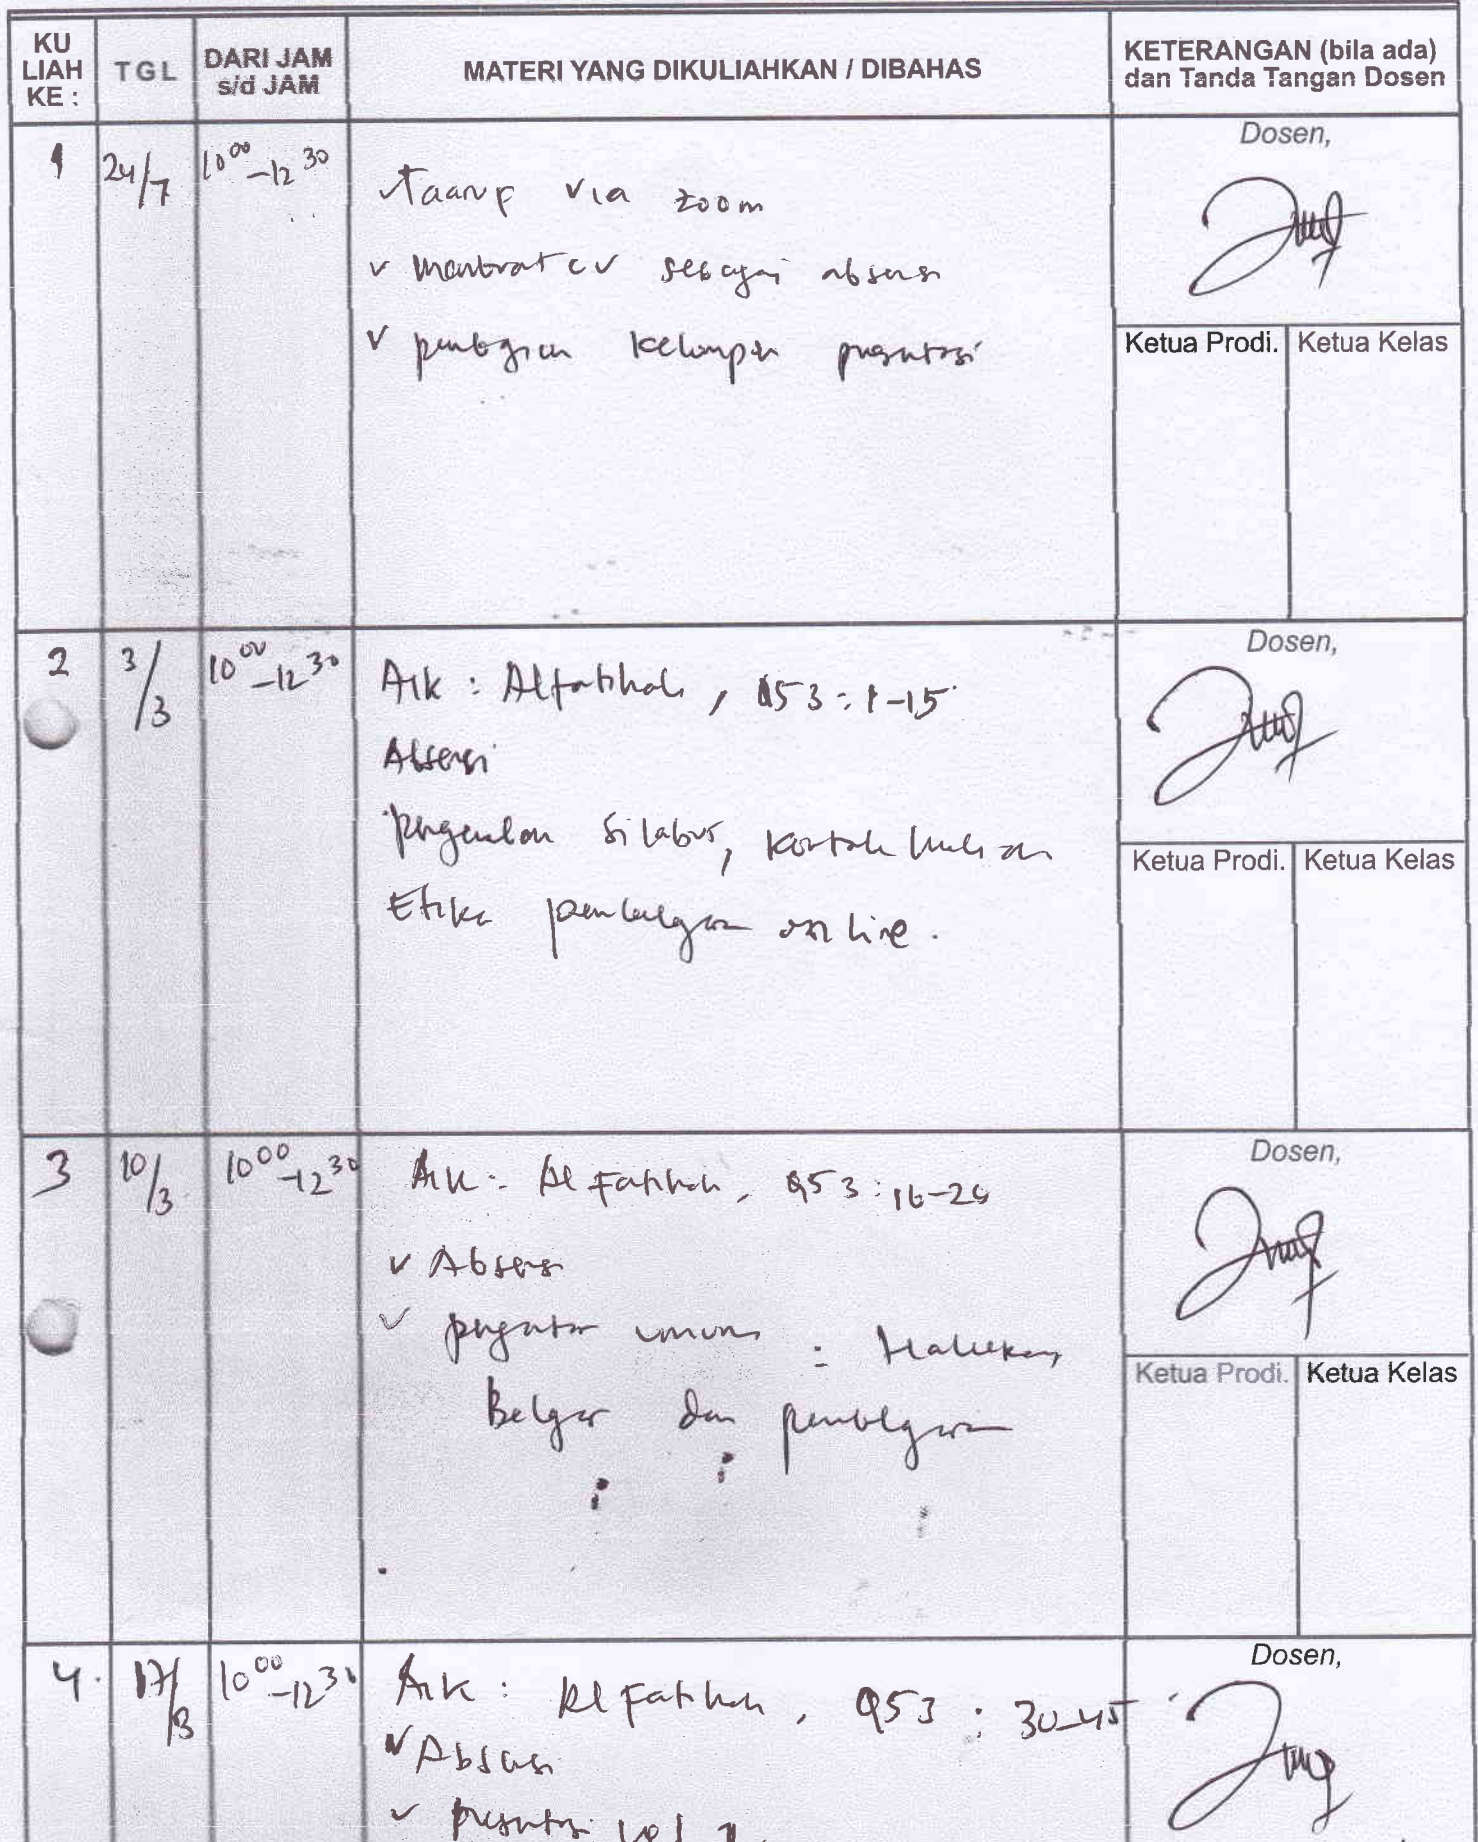 KU LIAH KE : TGL DARI JAM s/d JAM MATERI YANG DIKULIAHKAN / DIBAHAS KETERANGAN (bila ada) dan Tanda Tangan Dosen
1 24/7 10⁰⁰-12³⁰ Dosen,
via zoom
sebagai absensi
kelompok presentasi
Ketua Prodi. Ketua Kelas
2 3/3 10⁰⁰-12³⁰ AIK : Alfatihah, Q53 : 1-15 Dosen,
Absensi
silabus, kontrak kuliah
Etika pembelajaran online.
Ketua Prodi. Ketua Kelas
3 10/3 10⁰⁰-12³⁰ AIK : Al Fatihah, Q53 : 16-29 Dosen,
v Absensi
v pengantar umum :
Belajar dan pembelajaran
Ketua Prodi. Ketua Kelas
4. 17/3 10⁰⁰-12³⁰ AIK : Al Fatihah, Q53 : 30-45 Dosen,
v Absensi
v presentasi kel 1